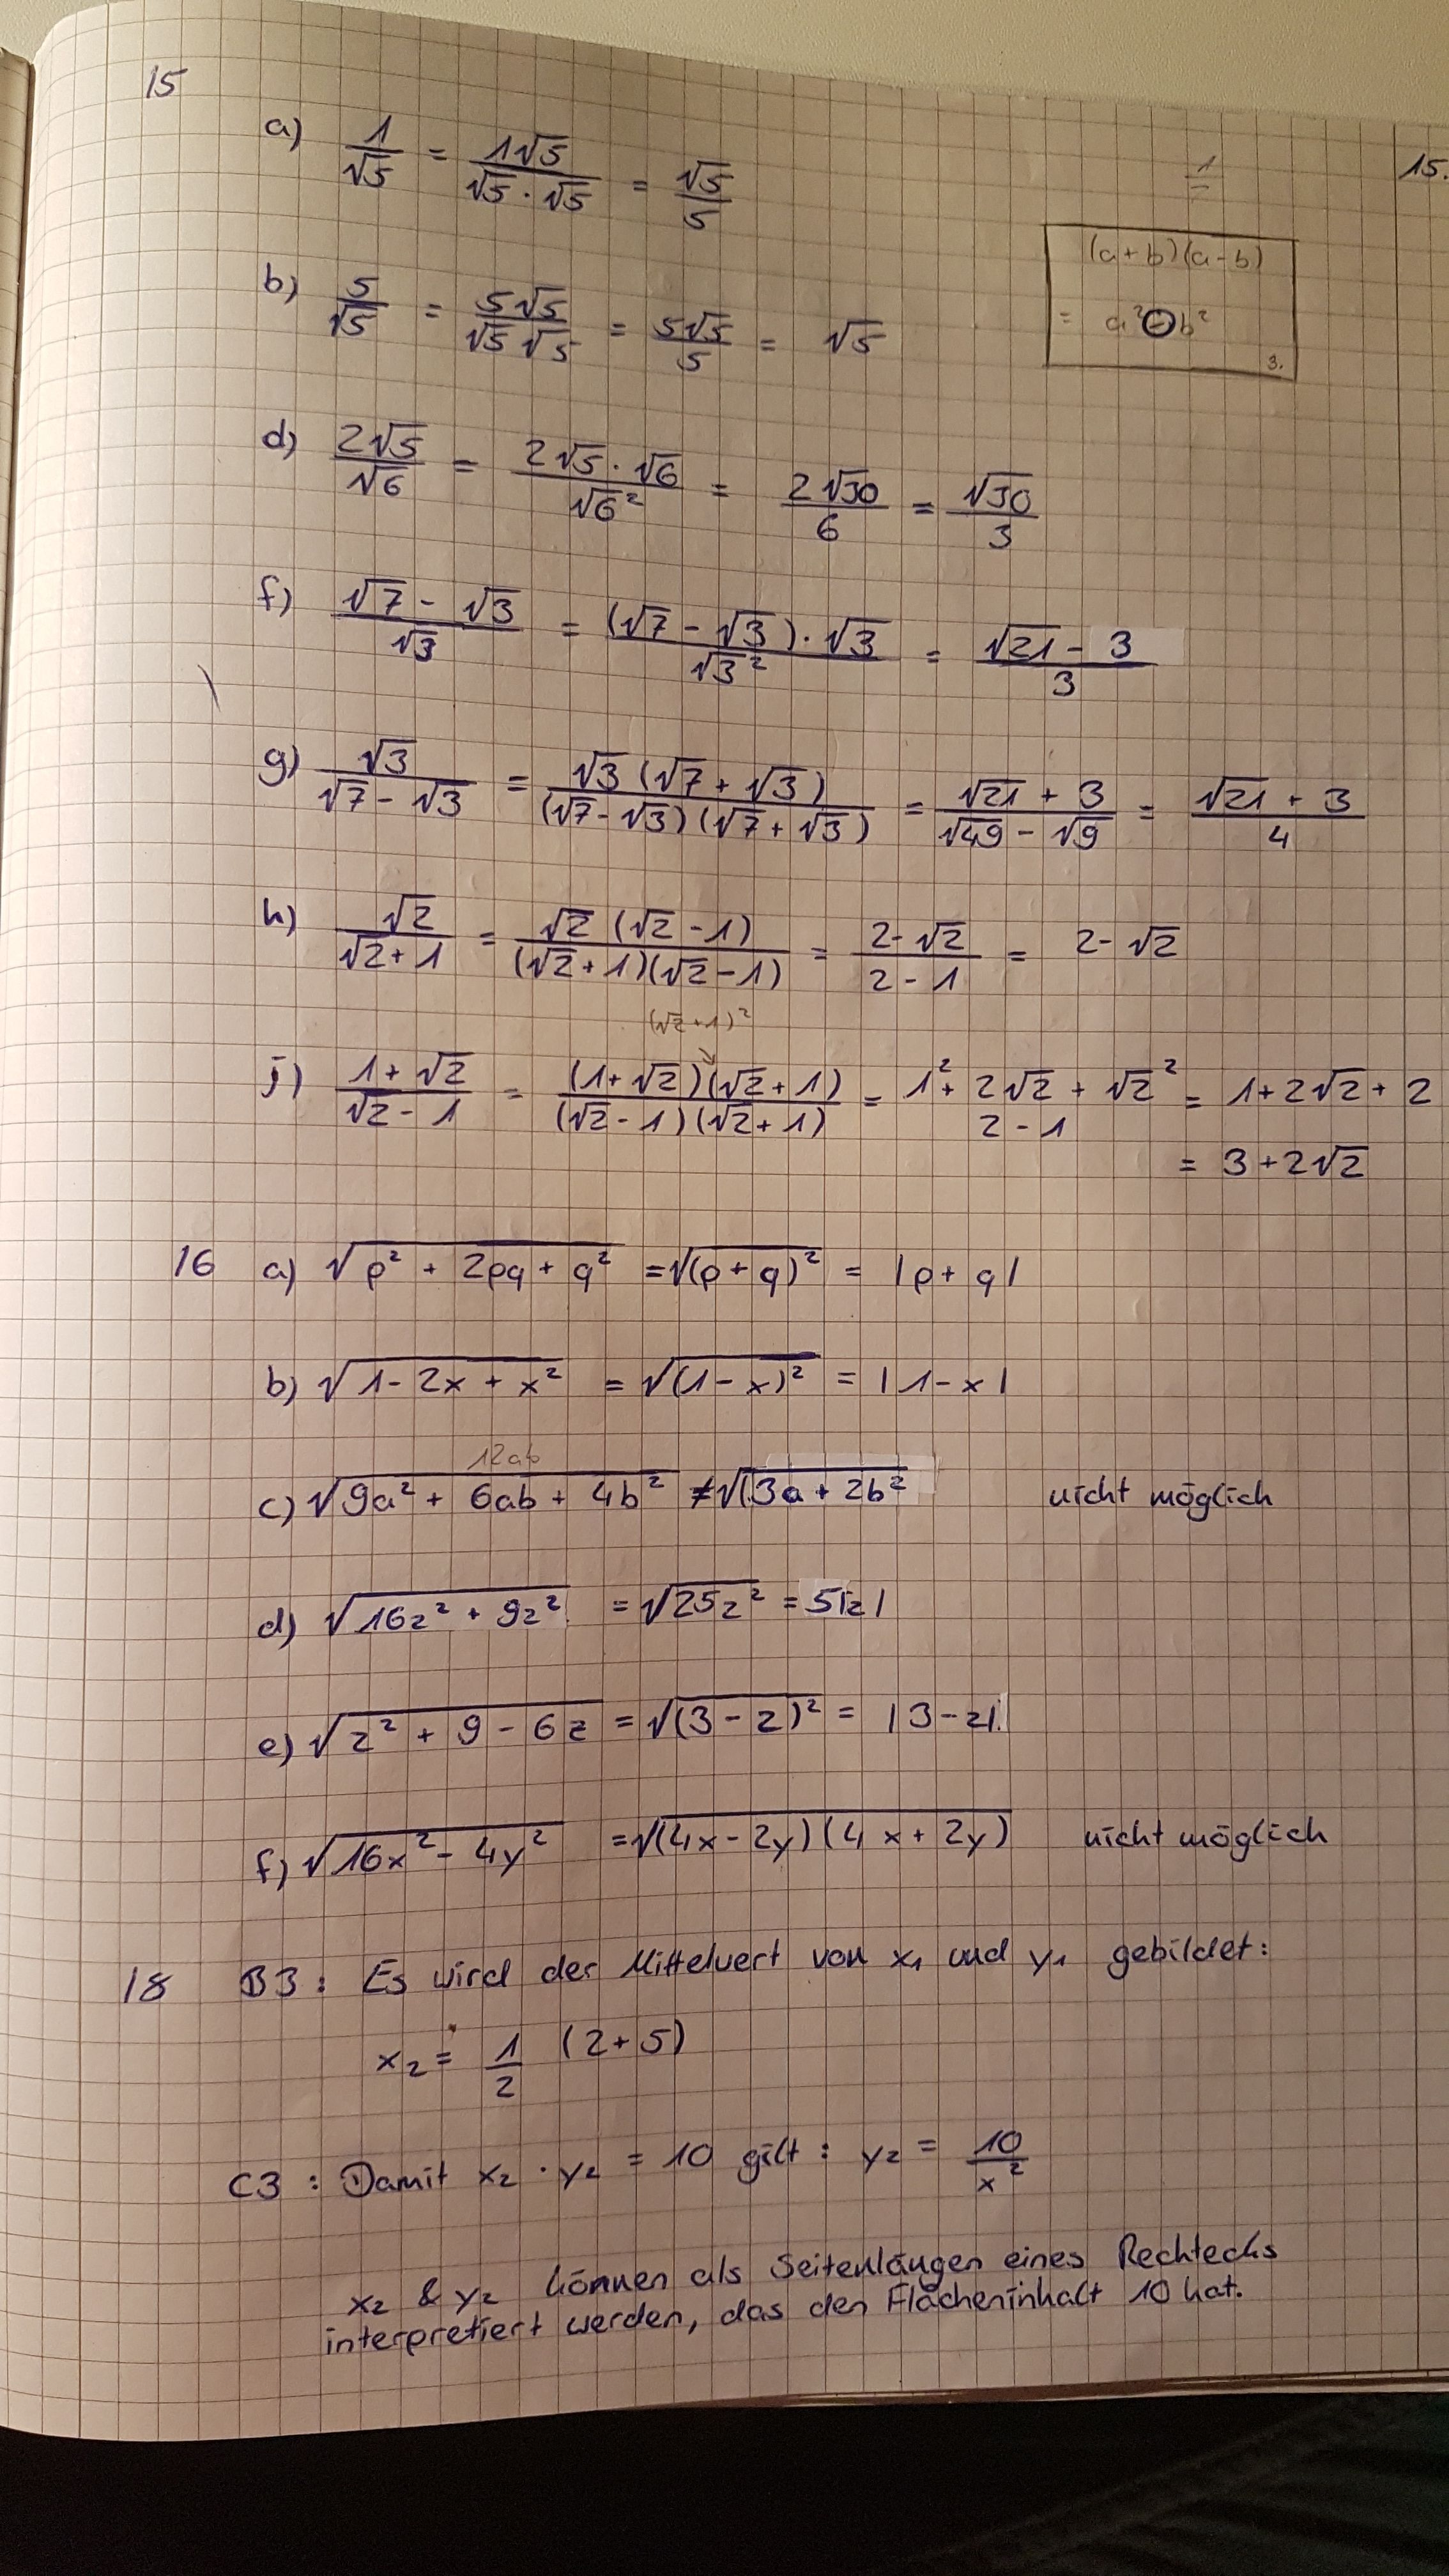 15
a) 1/√5 = 1√5/(√5 · √5) = √5/5
1
=
15.
(a+b)(a-b)
= a² - b²
3.
b) 5/√5 = 5√5/(√5 √5) = 5√5/5 = √5
d) 2√5/√6 = 2√5 · √6/√6² = 2√30/6 = √30/3
f) (√7 - √3)/√3 = (√7 - √3) · √3/√3² = (√21 - 3)/3
g) √3/(√7 - √3) = √3 (√7 + √3)/((√7 - √3) (√7 + √3)) = (√21 + 3)/(√49 - √9) = (√21 + 3)/4
h) √2/(√2 + 1) = √2 (√2 - 1)/((√2 + 1)(√2 - 1)) = (2 - √2)/(2 - 1) = 2 - √2
(√2 + 1)²
j) (1 + √2)/(√2 - 1) = (1 + √2)(√2 + 1)/((√2 - 1)(√2 + 1)) = 1² + 2√2 + √2² / 2 - 1 = 1 + 2√2 + 2
= 3 + 2√2
16 a) √(p² + 2pq + q²) = √((p + q)²) = |p + q|
b) √(1 - 2x + x²) = √((1 - x)²) = |1 - x|
12ab
c) √(9a² + 6ab + 4b²) ≠ √(3a + 2b² nicht möglich
d) √(16z² + 9z²) = √(25z²) = 5|z|
e) √(z² + 9 - 6z) = √((3 - z)²) = |3 - z|.
f) √(16x² - 4y²) = √((4x - 2y)(4x + 2y)) nicht möglich
18 B3: Es wird der Mittelwert von x₁ und y₁ gebildet:
x₂ = 1/2 (2 + 5)
C3: Damit x₂ · y₂ = 10 gilt: y₂ = 10/x²
x₂ & y₂ können als Seitenlängen eines Rechtecks
interpretiert werden, das den Flächeninhalt 10 hat.